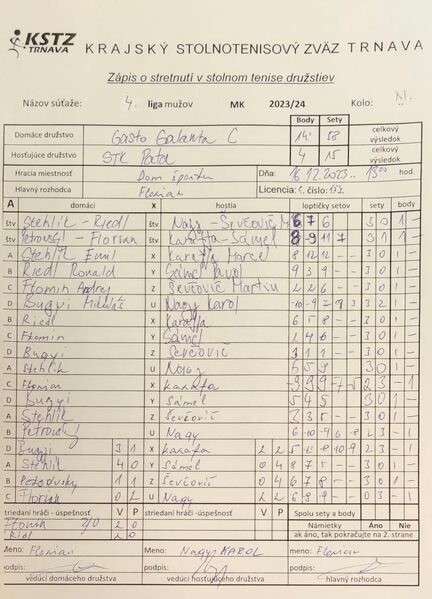 KSTZ TRNAVA KRAJSKÝ STOLNOTENISOVÝ ZVÄZ TRNAVA
Zápis o stretnutí v stolnom tenise družstiev
Názov súťaže: 4. liga mužov MK 2023/24 Kolo:
Body Sety
Domáce družstvo Gasto Galanta C 14 58 celkový výsledok
Hosťujúce družstvo STK Pata 4 15 celkový výsledok
Hracia miestnosť Dom športu Dňa: 16.12.2023 13 00 hod.
Hlavný rozhodca Florian Licencia č. číslo:
A domáci x hostia loptičky setov sety body
štv Stehlik - Riedl štv Nagy - Ševčovič M 6 7 6 3 0 1 -
štv Petrovský - Florian štv Karaffa - Sámel 8 -9 11 7 3 1 1
A Stehlik Emil X Karaffa Marcel 8 12 12 - - 3 0 1 -
B Riedl Ronald Y Sámel Pavol 9 3 9 - - 3 0 1 -
C Florian Andrej Z Ševčovič Martin 2 2 6 - - 3 0 1 -
D Bugyi Mikuláš U Nagy Karol -10 -9 7 9 3 3 2 1
B Riedl X Karaffa 6 5 8 - - 3 0 1 -
C Florian Y Sámel 2 4 6 - - 3 0 1 -
D Bugyi Z Ševčovič 3 1 1 - - 3 0 1 -
A Stehlik U Nagy 6 5 9 - - 3 0 1 -
C Florian X Karaffa 2 3 - 1
D Bugyi Y Sámel 5 4 5 3 0 1
A Stehlik Z Ševčovič 3 3 5 - - 3 0 1 -
B Petrovský U Nagy 6 -10 -9 6 -8 2 3 - 1
D Bugyi 3 1 X Karaffa 2 2 2 3 - 1
A Stehlik 4 0 Y Sámel 0 4 8 7 5 - - 3 0 1 -
B Petrovský 1 1 Z Ševčovič 0 4 6 7 8 - - 3 0 1 -
C Florian U Nagy 2 2 0 3 - 1
striedaní hráči - úspešnosť V P striedaní hráči - úspešnosť V P Spolu sety a body
Florian 2/0 2 0 Námietky Áno Nie
Riedl 2 0 ak áno, tak pokračujte na 2. strane
Meno: Florian Meno: Nagy KAROL meno: Florian
podpis: podpis: podpis:
vedúci domáceho družstva vedúci hosťujúceho družstva hlavný rozhodca